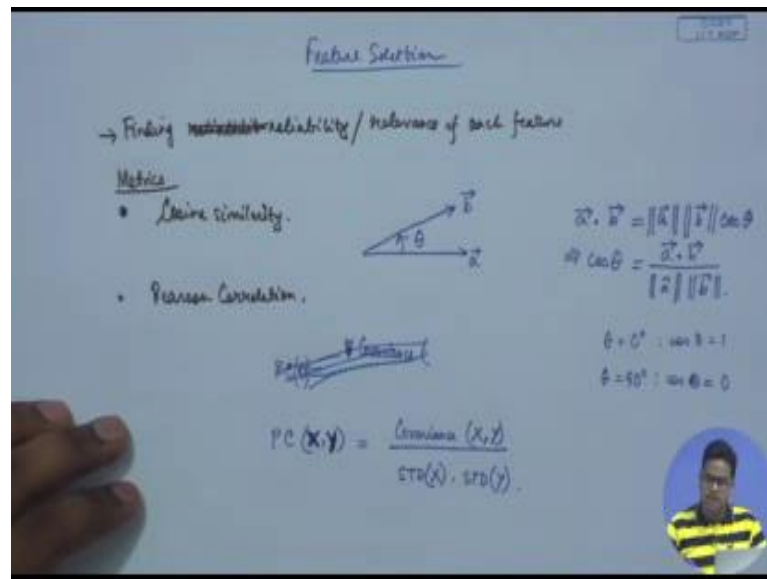 Feature Selection
→ Finding reliability / relevance of each feature
Metrics
• Cosine similarity.
b
θ
a
a . b = ||a|| ||b|| cos θ
⇒ cos θ = a . b / ||a|| ||b||.
• Pearson Correlation.
θ = 0° : cos θ = 1
θ = 90° : cos θ = 0
PC (X,Y) = Covariance (X,Y) / STD(X) . STD(Y) .